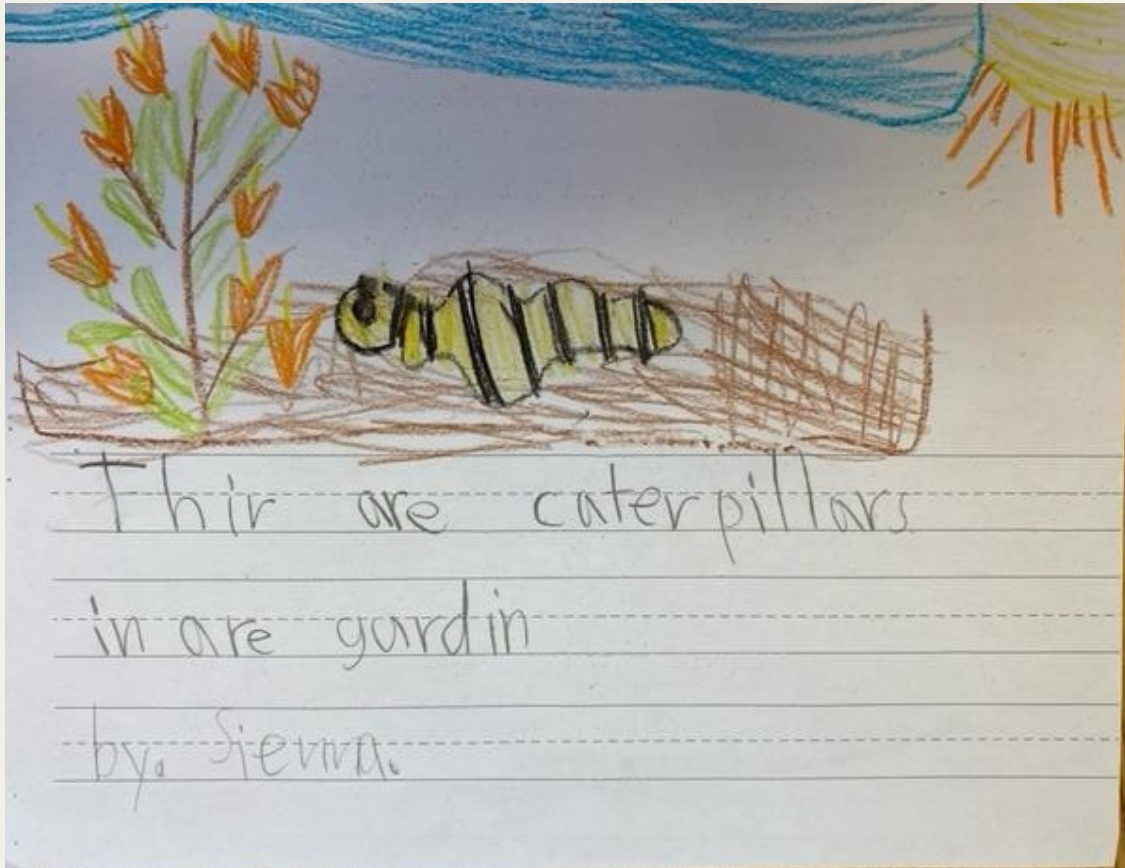 Thir are caterpillars
in are gardin
by. Sienna.